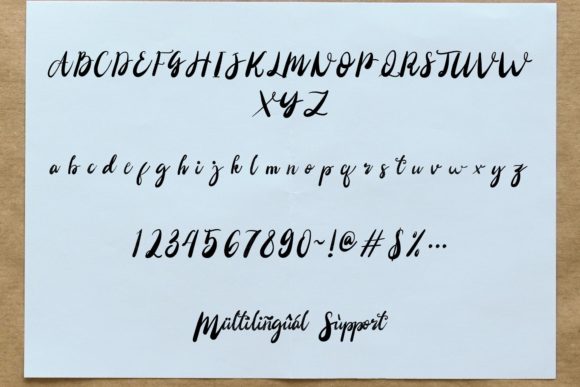 ABCDEFGHIJKLMNOPQRSTUVW
XYZ
a b c d e f g h i j k l m n o p q r s t u v w x y z
1234567890~!@#$%...
Mültilïñgûál Sùpport